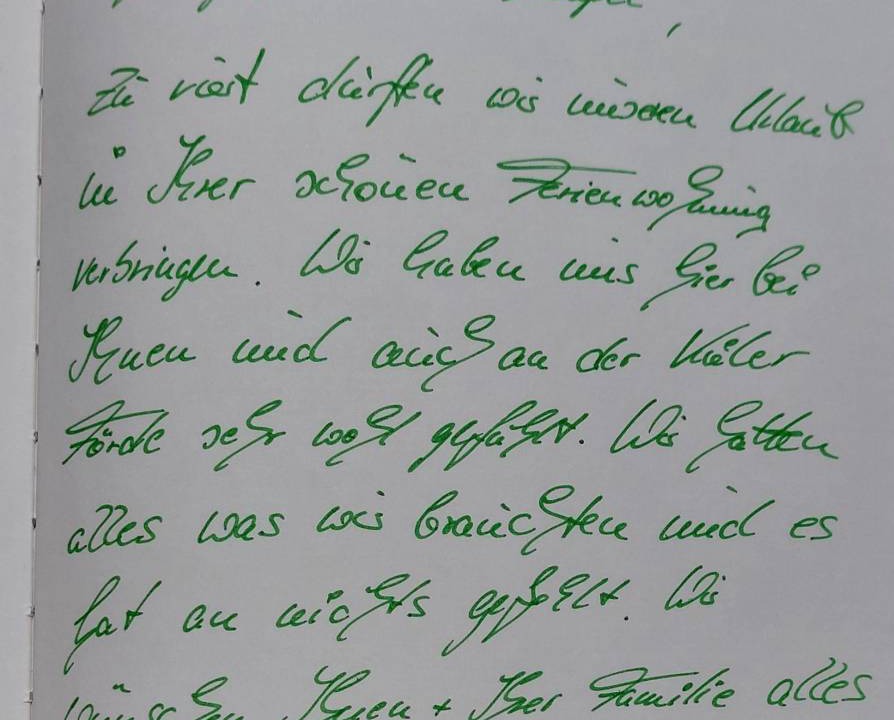 Zu viert dürften wir unseren Urlaub
in Ihrer schönen Ferienwohnung
verbringen. Wir haben uns hier bei
Ihnen und auch an der Kieler
Förde sehr wohl gefühlt. Wir hatten
alles was wir brauchten und es
hat an nichts gefehlt. Wir
wünschen Ihnen + Ihrer Familie alles